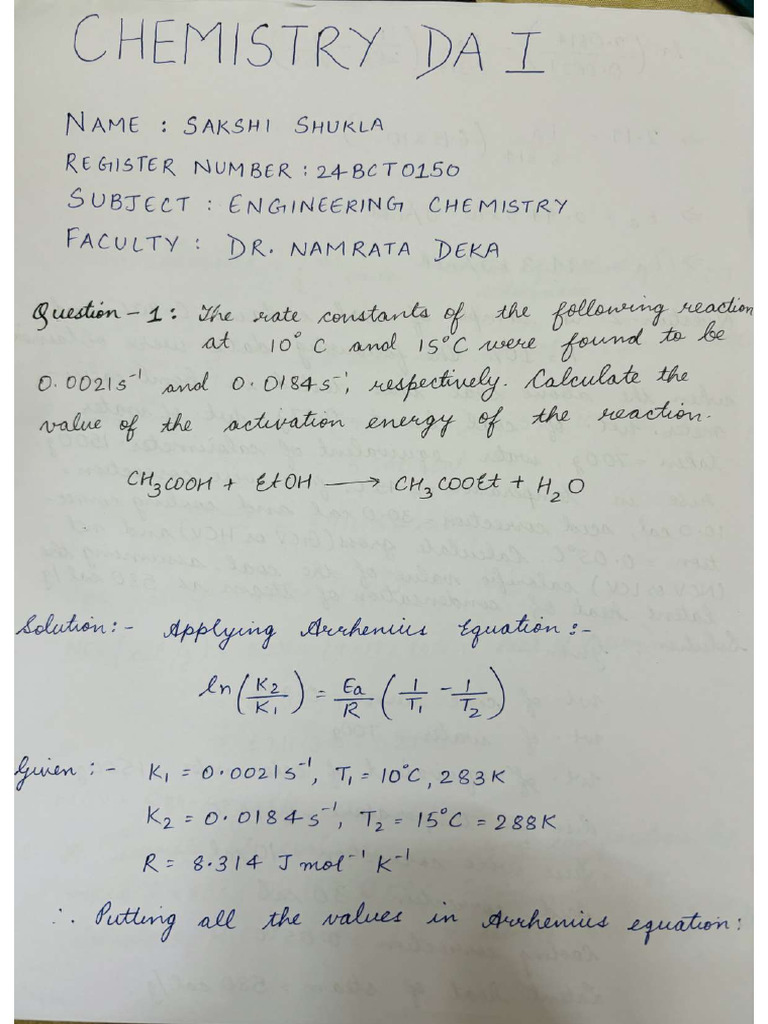 CHEMISTRY DA I
NAME : SAKSHI SHUKLA
REGISTER NUMBER : 24BCT0150
SUBJECT : ENGINEERING CHEMISTRY
FACULTY : DR. NAMRATA DEKA
Question - 1 : The rate constants of the following reaction
at 10°C and 15°C were found to be
0.0021 s⁻¹ and 0.0184 s⁻¹, respectively. Calculate the
value of the activation energy of the reaction.
CH₃COOH + EtOH ⟶ CH₃COOEt + H₂O
Solution :- Applying Arrhenius Equation :-
ln(K₂/K₁) = Ea/R (1/T₁ - 1/T₂)
Given :- K₁ = 0.0021 s⁻¹, T₁ = 10°C, 283 K
K₂ = 0.0184 s⁻¹, T₂ = 15°C = 288K
R = 8.314 J mol⁻¹ K⁻¹
∴ Putting all the values in Arrhenius equation :